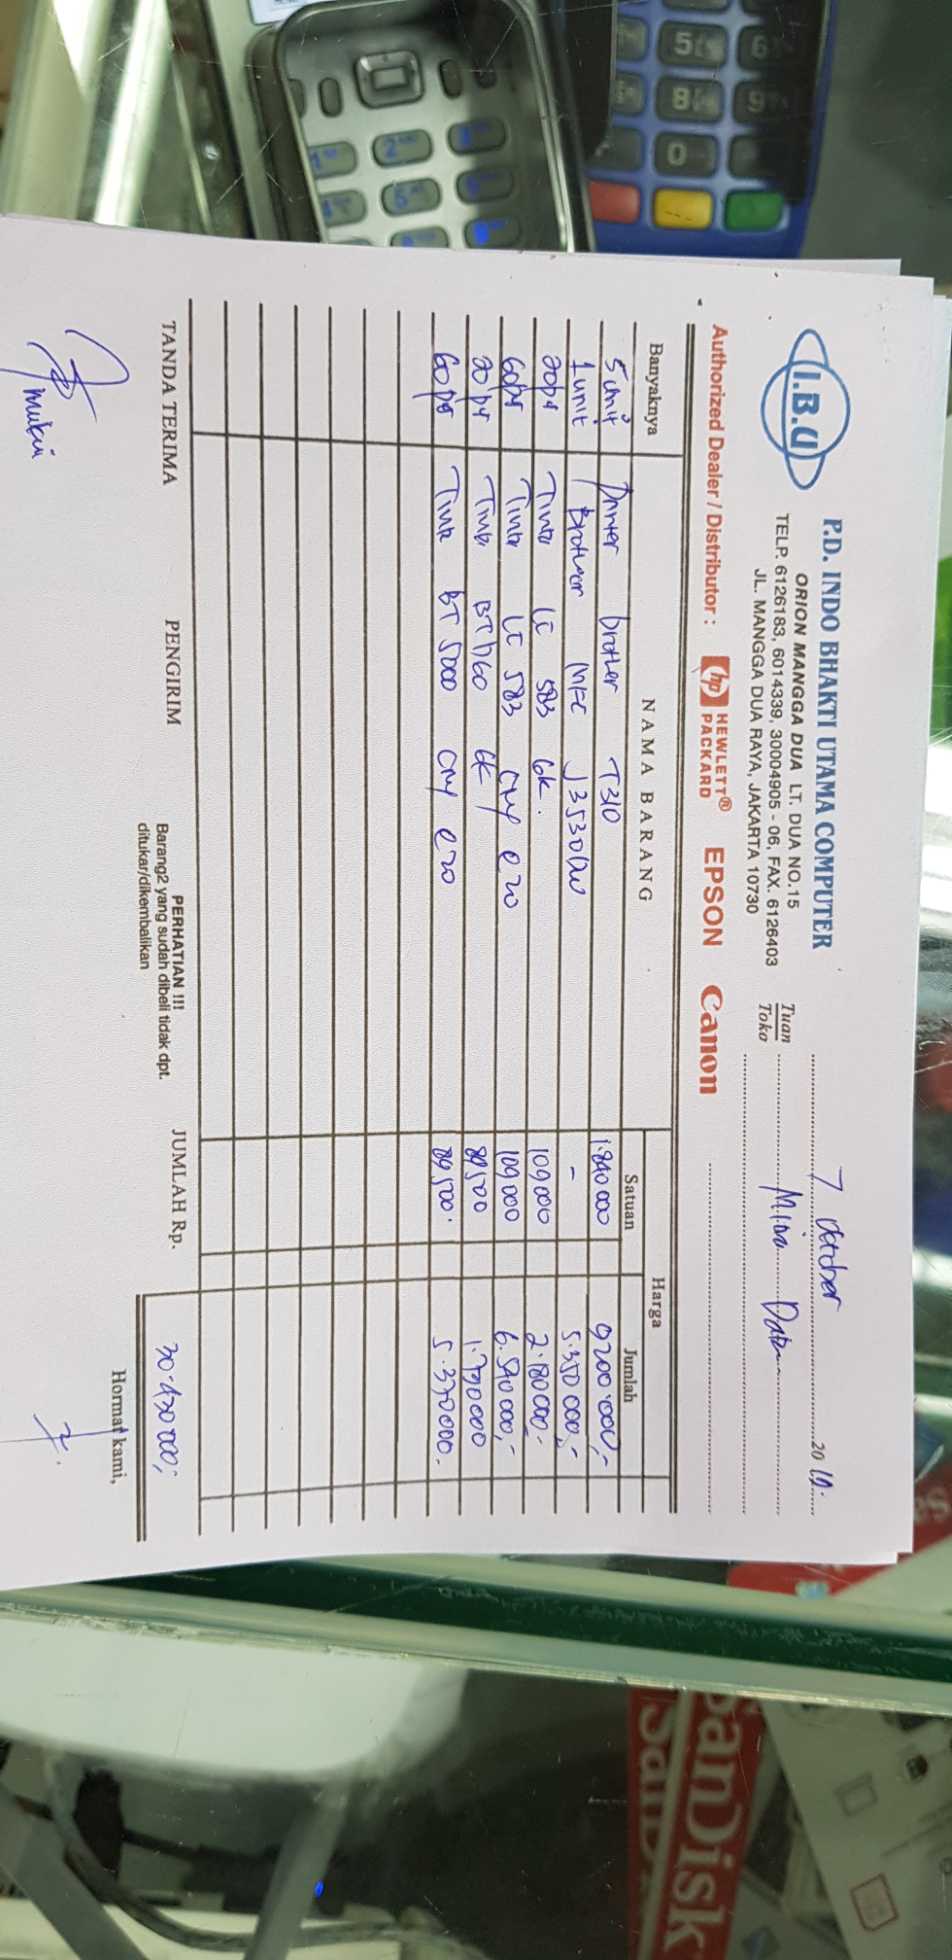 I.B.U
P.D. INDO BHAKTI UTAMA COMPUTER
ORION MANGGA DUA LT. DUA NO.15
TELP. 6126183, 6014339, 30004905 - 06, FAX. 6126403
JL. MANGGA DUA RAYA, JAKARTA 10730
7 October 2019.
Tuan
Toko
Authorized Dealer / Distributor : hp HEWLETT® PACKARD EPSON Canon
Banyaknya NAMA BARANG Harga
Satuan Jumlah
5 unit Printer brother T310 1.840 000 9200.000,-
1 unit Brother MFC J3530DW - 5.350 000,-
20 ps Tinta LC 583 BK. 109,000 2.180000,-
60 ps Tinta LC 583 CMY @20 109 000 6.540 000,-
20 ps Tinta BK 89500 1.790000
60 ps Tinta BT 5000 CMY @20 89500. 5.370000.-
TANDA TERIMA PENGIRIM
PERHATIAN !!!
Barang2 yang sudah dibeli tidak dpt.
ditukar/dikembalikan
JUMLAH Rp. 30.430 000,-
Hormat kami,
SanDisk
5
6
8
9
0
1
2
4
5